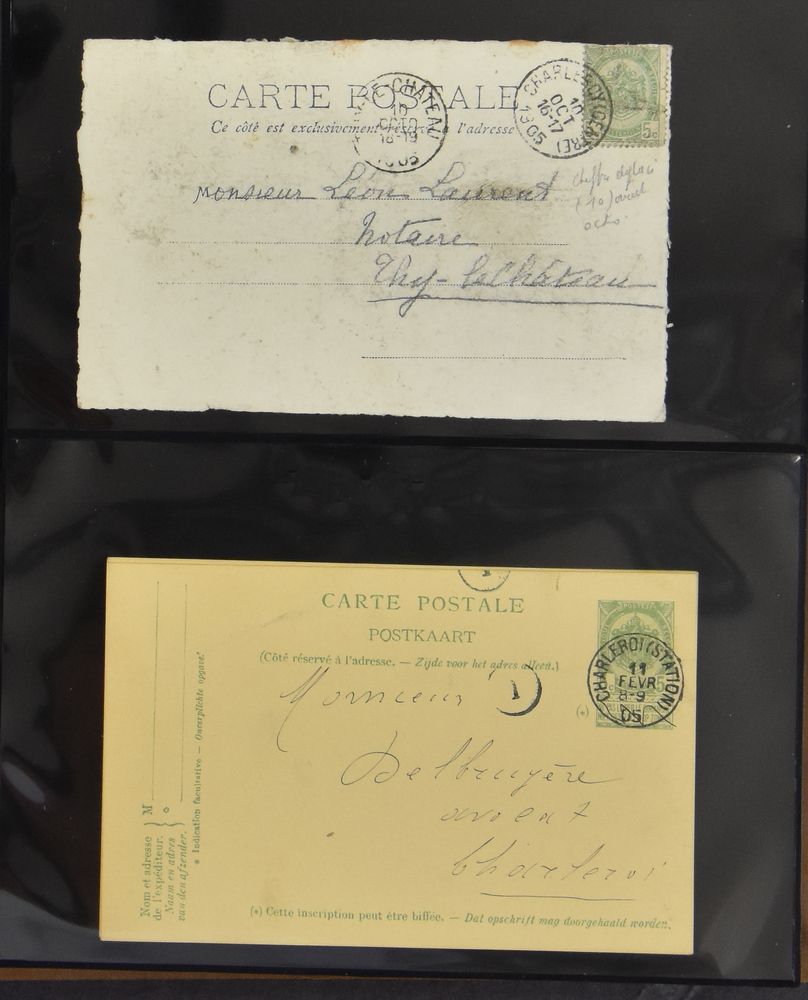 CARTE POSTALE
Ce côté est exclusivement réservé à l'adresse
CHATEAU
10
OCTO
18-19
1905
CHARLEROY (CENTRE)
10
OCT
16-17
1905
5c
Monsieur Léon Laurent
Notaire
Thy-le Château
1
CARTE POSTALE
POSTKAART
(Côté réservé à l'adresse. — Zijde voor het adres alleen.)
POSTES
5
CHARLEROI (STATION)
11
FEVR
8-9
05
(*)
Monsieur
1
Delbruyère
avocat
Charleroi
(*) Cette inscription peut être biffée. — Dat opschrift mag doorgehaald worden.
Nom et adresse
de l'expéditeur.
Naam en adres
van den afzender.
M
* Indication facultative — Onverplichte opgave.